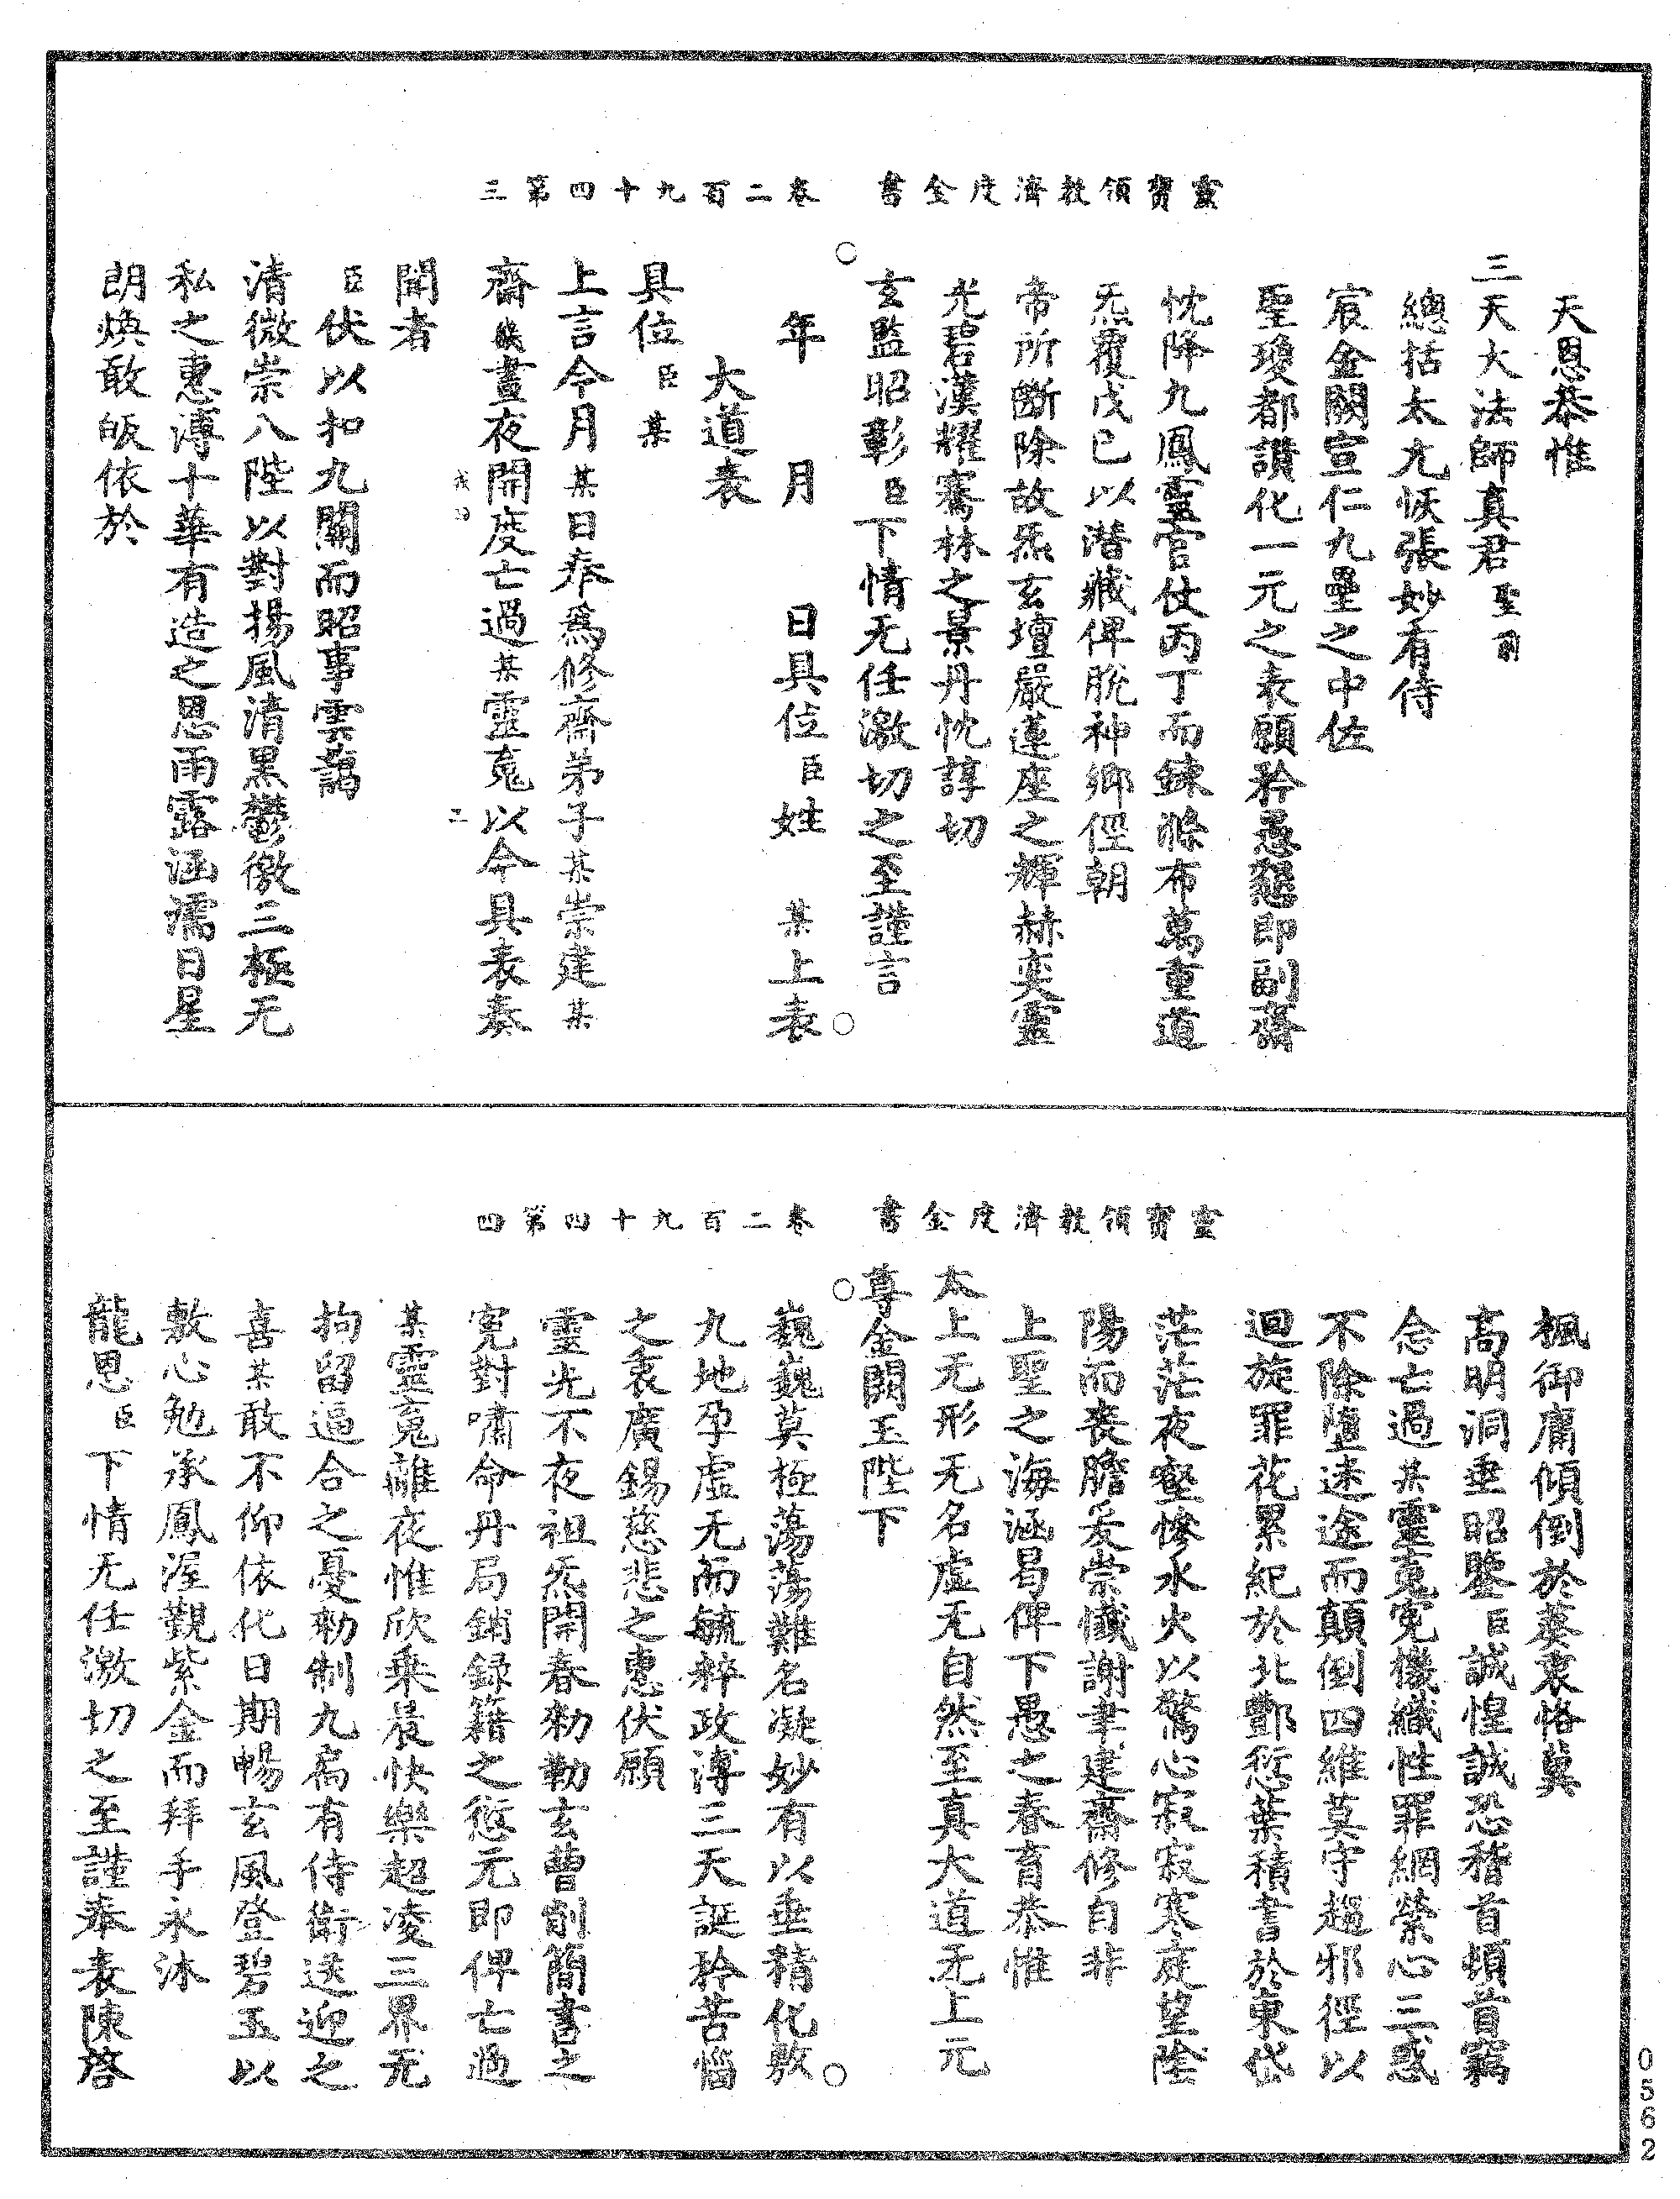 靈寶領教濟度金書　卷二百九十四第三
天恩恭惟
三天大法師真君聖前
總括太尢恢張妙有侍
宸金闕宣仁九壘之中佐
聖瓊都讚化一元之表願矜愚懇即副齋
忱降九鳳靈官仗丙丁而鍊滌布萬重道
炁覆戊巳以潛藏俾脫神鄉徑朝
帝所斷除故炁玄壇嚴蓮座之輝赫奕靈
光碧漢耀騫林之景丹忱諄切
玄監昭彰臣下情无任激切之至謹言
年　月　日具位臣姓　某上表
大道表
具位臣某
上言今月某日奉為修齋弟子某崇建某
齋幾晝夜開度亡過某靈䰟以今具表奏
聞者
臣伏以扣九關而昭事雲藹
清微崇八陛以對揚風清黑鬱徹三極无
私之惠溥十華有造之恩雨露涵濡日星
朗煥敢皈依於
靈寶領教濟度金書　卷二百九十四第四
楓御庸傾倒於葵衷恪冀
高明洞垂昭鑒臣誠惶誠恐稽首頓首竊
念亡過某靈䰟冤機織性罪網縈心三惑
不除墮迷途而顛倒四維莫守趨邪徑以
迴旋罪花累紀於北酆愆葉積書於東岱
茫茫夜壑慘水火以驚心寂寂寒庭望陰
陽而喪膽爰崇懺謝聿建齋修自非
上聖之海涵曷俾下愚之春育恭惟
太上无形无名虛无自然至真大道无上元
尊金闕玉陛下
巍巍莫極蕩蕩難名凝妙有以垂精化敷
九地孕虛无而毓粹政溥三天誕矜苦惱
之衷廣錫慈悲之惠伏願
靈光不夜祖炁開春勑勒玄曹削簡書之
冤對嘯命丹局銷錄籍之愆元即俾亡過
某靈䰟離夜惟欣乘晨快樂超凌三界无
拘留逼合之憂勑制九扃有侍衛送迎之
喜某敢不仰依化日期暢玄風登碧玉以
敷心勉承鳳渥覲紫金而拜手永沐
龍恩臣下情无任激切之至謹奉表陳啓
0562